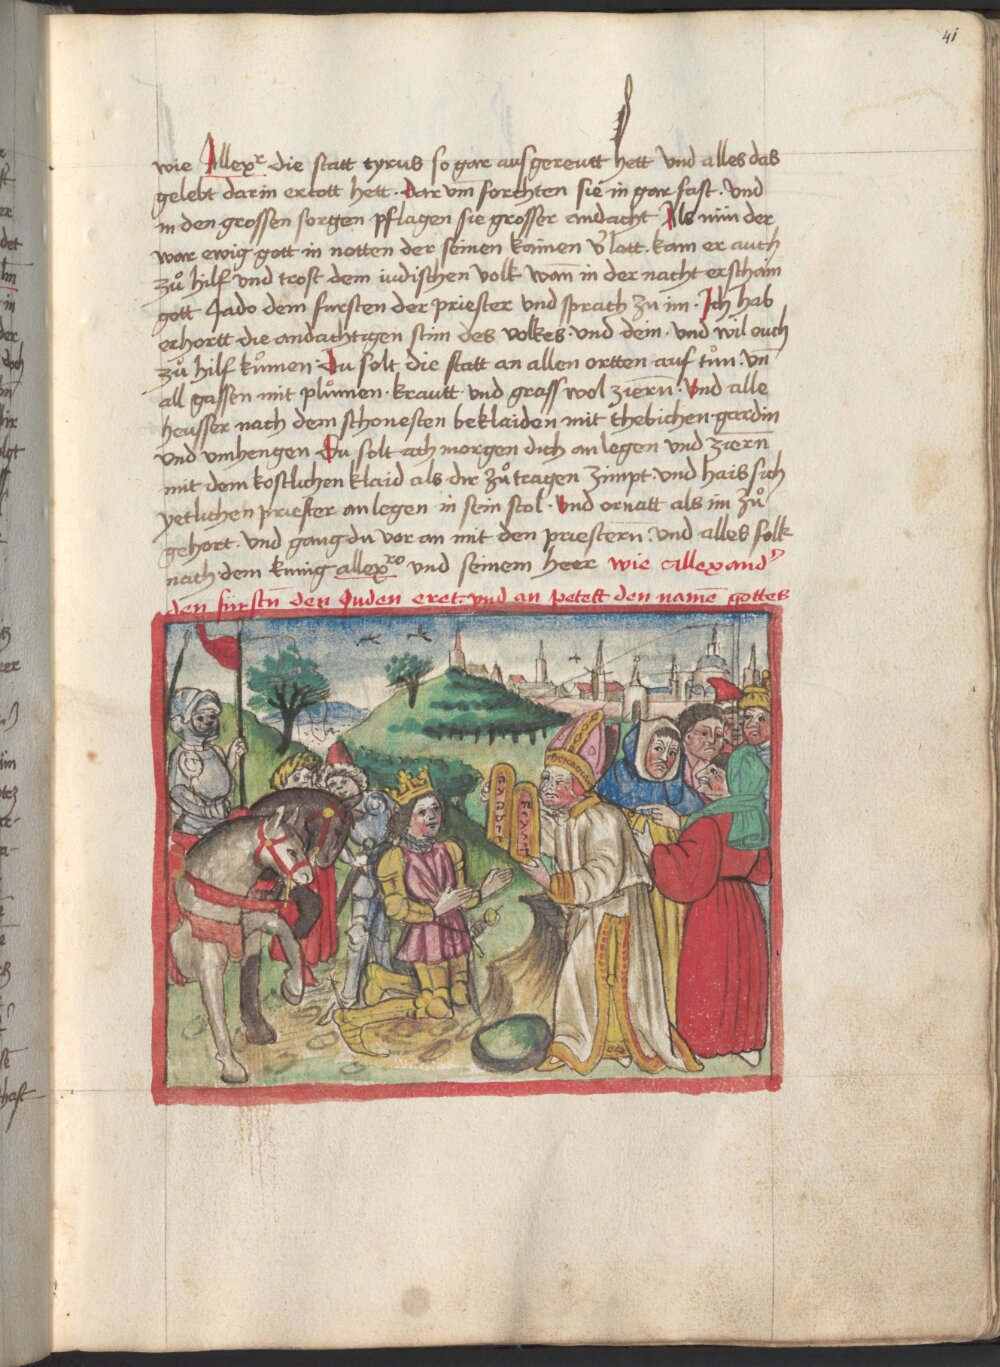 41
wie Allexr die statt tyrus so gar ausgereutt hett Und alles das
gelebt darin ertott hett. Dar vm forchten sie in gar fast. Und
in den grossen sorgen pflagen sie grosser andacht Als nün der
war ewig gott in notten der seinen kainen v'latt. kam er auch
zů hilf und trost dem iudischen volk wan̄ in der nacht erschain
gott Jado dem fursten der priester und sprach zu im. Ich hab
erhortt die andachtigen stim des volkes. vnd dein. vnd wil euch
zů hilf kůmen. Du solt die statt an allen ortten auf tůn. vn̄
all gassen mit plůmen. krautt. vnd grass wol ziern̄. Vnd alle
heusser nach dem schonesten beklaiden mit thebichen. gardin
vnd vmhengen Du solt ach morgen dich an legen vnd ziern̄
mit dem kostlichen klaid als dir zů tragen zimpt. vnd hais sich
yetlichen priester an legen in sein stol. Vnd ornatt als im zů
gehort. vnd gang du vor an mit den priestern̄. vnd alles folk
nach. dem kunig allexro vnd seinem heer wie allexand'
den fürstn̄ der Juden eret. vnd an petett den namē gottes